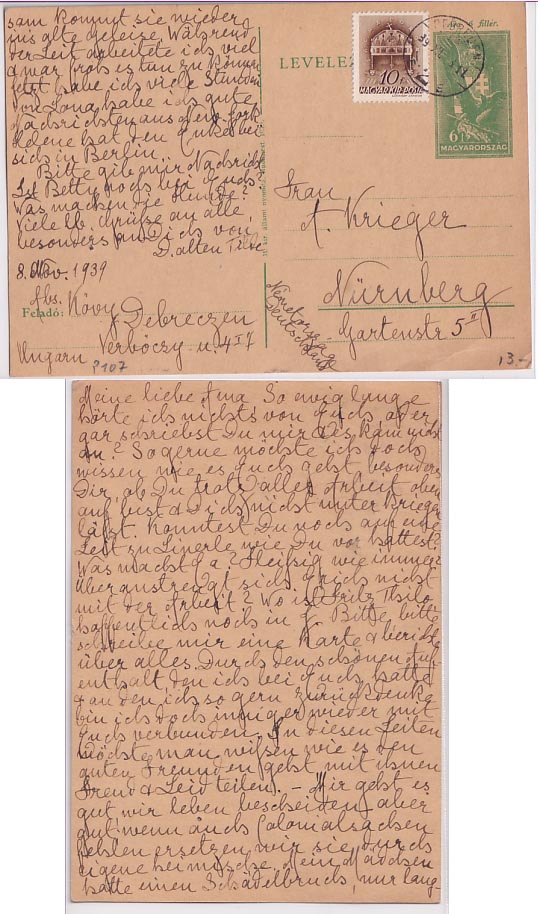 sam kommt sie wieder
ins alte geleise. Während
der Zeit arbeitete ich viel
& war froh es tun zu können
jetzt habe ich viele Stunden
von Ilona habe ich gute
Nachrichten aus New York
Helene hat den Enkel bei
sich in Berlin.
Bitte gib mir Nachricht
Ist Betty noch bei Euch?
Was machen die Hunde?
Viele lb. Grüsse an alle,
besonders an Dich von
D. alten Tilde
8. Nov. 1939
LEVELEZŐ
6 fillér.
10f
MAGYAR KIR. POSTA
DEBRECEN
6f
MAGYARORSZÁG
Frau
A. Krieger
Nürnberg
Gartenstr 5 II
Németország
Deutschland
Abs.
Feladó: Kövy
Debreczen
Verböczy u. 4 I 7
Ungarn
P107
13.-
Meine liebe Anna So ewig lange
hörte ich nichts von Euch & gar
gar schriebst Du mir als kam nicht
an? So gerne möchte ich doch
wissen wie es Euch geht besonders
Dir, ob Du trotz aller Arbeit oben
auf bist & Dich nicht unter kriegen
läßt. Konntest Du noch auf eine
Zeit zu Linerle wie Du vor hattest?
Was macht Fa? Fleißig wie immer?
überanstrengt sich auch nicht
mit der Arbeit? Wo ist Fritz Thilo
hoffentlich noch in Bitte bitte
schreibe mir eine Karte & berichte
über alles. Durch den schönen Auf-
enthalt den ich bei Euch hatte
& an den ich so gern zurückdenke
bin ich doch inniger wieder mit
Euch verbunden. In diesen Zeiten
möchte man wissen wie es den
guten Freunden geht mit ihnen
Freud & Leid teilen. - Mir geht es
gut wir leben bescheiden aber
gut wenn auch Colonialsachen
fehlen ersetzen wir sie durch
eigene heimische. Mein Mädchen
hatte einen Schädelbruch, nur lang-